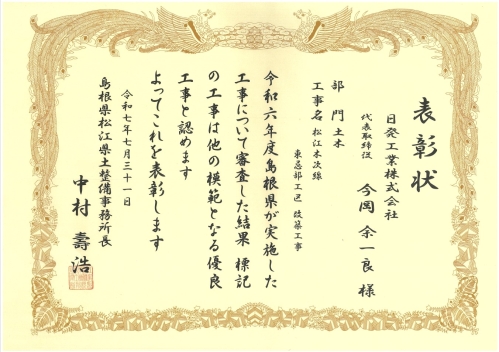 表彰状
日発工業株式会社
代表取締役 今岡 余一良 様
部門 土木
工事名 松江木次線
東忌部工区 改築工事
令和六年度島根県が実施した
工事について審査した結果 標記
の工事は他の模範となる優良
工事と認めます
よってこれを表彰します
令和七年七月三十一日
島根県松江県土整備事務所長
中村 壽浩